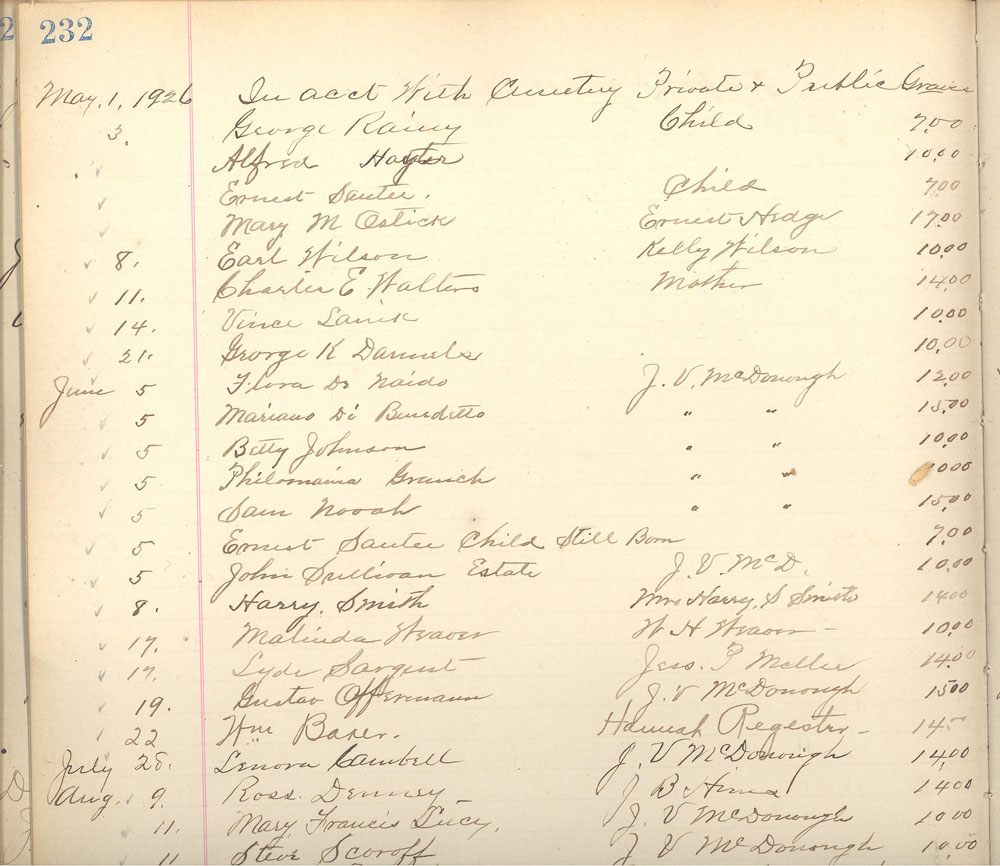 232
May. 1, 1926 In acct With Cemetery Private & Public Graves
3. George Rainy Child 7.00
Alfred Hayter 10.00
Ernest Santee. Child 7.00
Mary M Ostick Ernest Hedge 17.00
8. Earl Wilson Kelly Wilson 10.00
11. Charlie E Walters Mother 14.00
14. Vince Lanik 10.00
21. George K Daniels 10.00
June 5 Flora De Naido J. V. McDonough 12.00
5 Mariano Di Benedetto " " 15.00
5 Betty Johnson " " 10.00
5 Philomaina Granich " " 10.00
5 Sam Novah " " 15.00
5 Ernest Santee Child Still Born 7.00
5 John Sullivan Estate J. V. McD. 10.00
8. Harry. Smith Mrs Harry. S Smith 14.00
17. Malinda Weaver W H Weaver - 10.00
17. Lyde Sargent Jess. P Mellie 14.00
19. Gustav Offermann J. V McDonough 15.00
22 Wm Baker. Hannah Register - 14-
July 28. Lenora Cambell J. V McDonough 14.00
Aug. 9. Ross. Denney J B Hims 14.00
11. Mary. Francis Lucy. J. V McDonough 10.00
11 Steve Scoroff J V McDonough 10.00